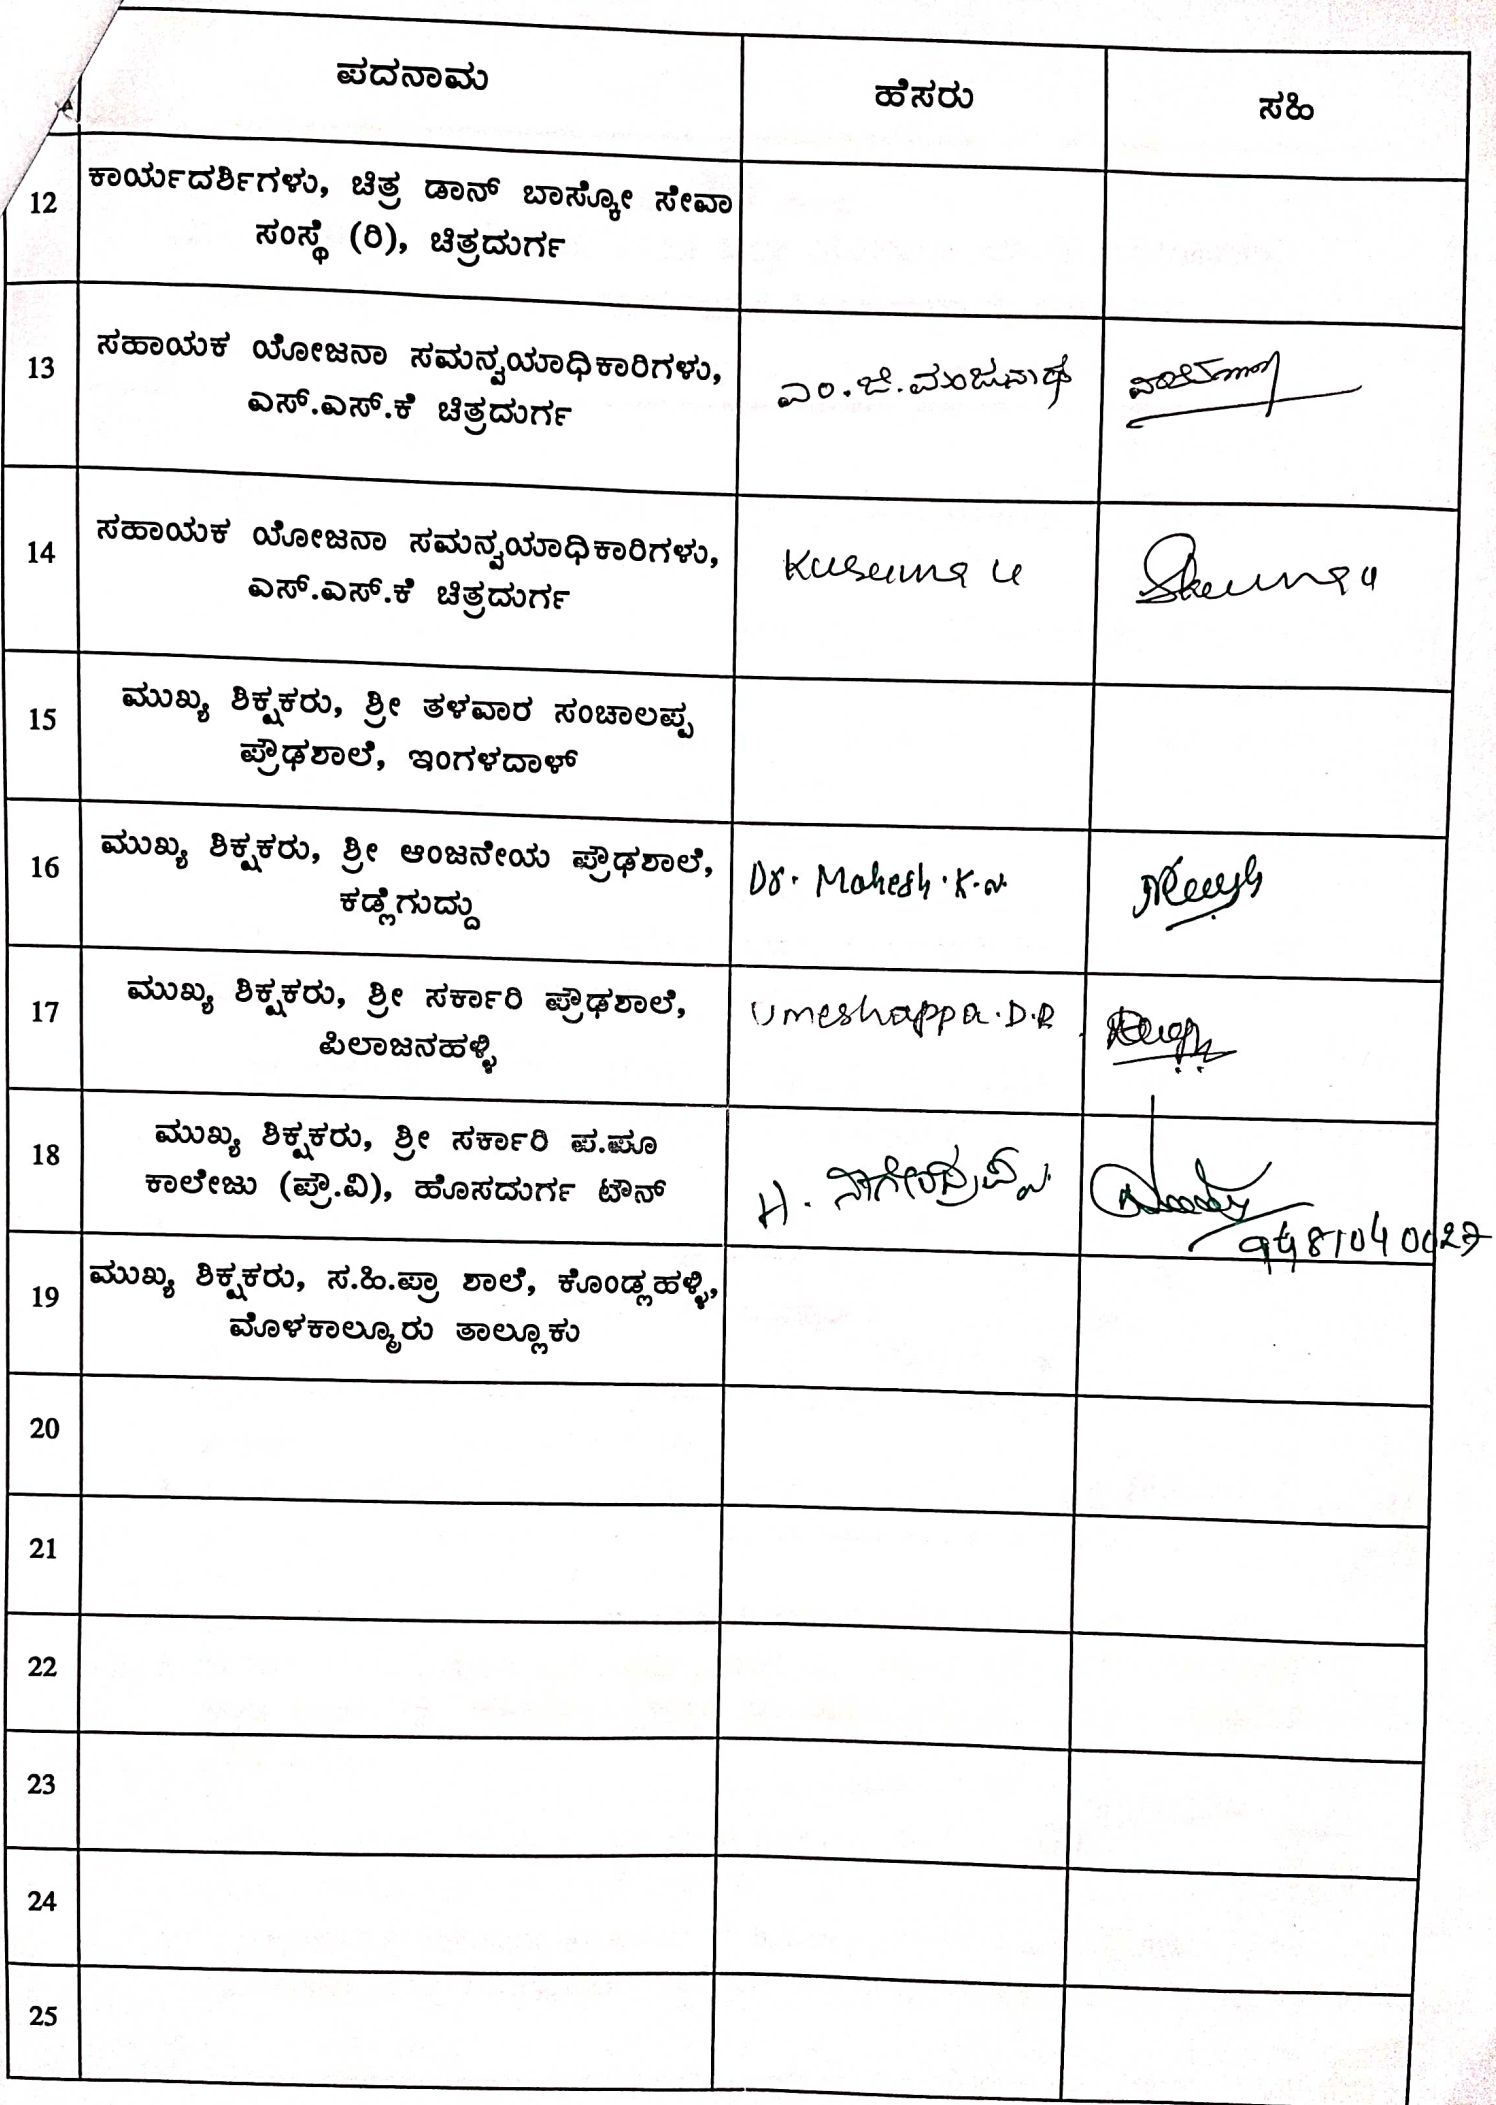 ಪದನಾಮ ಹೆಸರು ಸಹಿ
12 ಕಾರ್ಯದರ್ಶಿಗಳು, ಚಿತ್ರ ಡಾನ್ ಬಾಸ್ಕೋ ಸೇವಾ
ಸಂಸ್ಥೆ (ರಿ), ಚಿತ್ರದುರ್ಗ
13 ಸಹಾಯಕ ಯೋಜನಾ ಸಮನ್ವಯಾಧಿಕಾರಿಗಳು,
ಎಸ್.ಎಸ್.ಕೆ ಚಿತ್ರದುರ್ಗ
ಎಂ.ಜೆ.ಮಂಜುನಾಥ
14 ಸಹಾಯಕ ಯೋಜನಾ ಸಮನ್ವಯಾಧಿಕಾರಿಗಳು,
ಎಸ್.ಎಸ್.ಕೆ ಚಿತ್ರದುರ್ಗ
Kusuma U
15 ಮುಖ್ಯ ಶಿಕ್ಷಕರು, ಶ್ರೀ ತಳವಾರ ಸಂಚಾಲಪ್ಪ
ಪ್ರೌಢಶಾಲೆ, ಇಂಗಳದಾಳ್
16 ಮುಖ್ಯ ಶಿಕ್ಷಕರು, ಶ್ರೀ ಆಂಜನೇಯ ಪ್ರೌಢಶಾಲೆ,
ಕಡ್ಲೆಗುದ್ದು
Dr. Mahesh.K.N.
17 ಮುಖ್ಯ ಶಿಕ್ಷಕರು, ಶ್ರೀ ಸರ್ಕಾರಿ ಪ್ರೌಢಶಾಲೆ,
ಪಿಲಾಜನಹಳ್ಳಿ
Umeshappa.D.R
18 ಮುಖ್ಯ ಶಿಕ್ಷಕರು, ಶ್ರೀ ಸರ್ಕಾರಿ ಪ.ಪೂ
ಕಾಲೇಜು (ಪ್ರೌ.ವಿ), ಹೊಸದುರ್ಗ ಟೌನ್
H. ನಾಗೇಂದ್ರಪ್ಪ
9481040027
19 ಮುಖ್ಯ ಶಿಕ್ಷಕರು, ಸ.ಹಿ.ಪ್ರಾ ಶಾಲೆ, ಕೊಂಡ್ಲಹಳ್ಳಿ,
ಮೊಳಕಾಲ್ಮೂರು ತಾಲ್ಲೂಕು
20
21
22
23
24
25